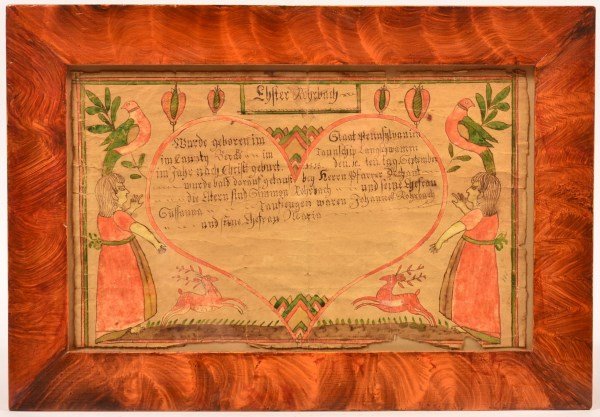 Ehster Rohrbach
Wurde geboren im Staat Pennsilvanien
im Caunty Berck im Taunschip Langschwamm
im Jahr nach Christi geburt den ten tag September
wurde bald darauf getauft bey Herrn Pfarrer
die Eltern sind Simmon Rohrbach und seine Ehefrau
Sussanna Taufzeugen waren Johannes Rohrbach
und seine Ehefrau Maria